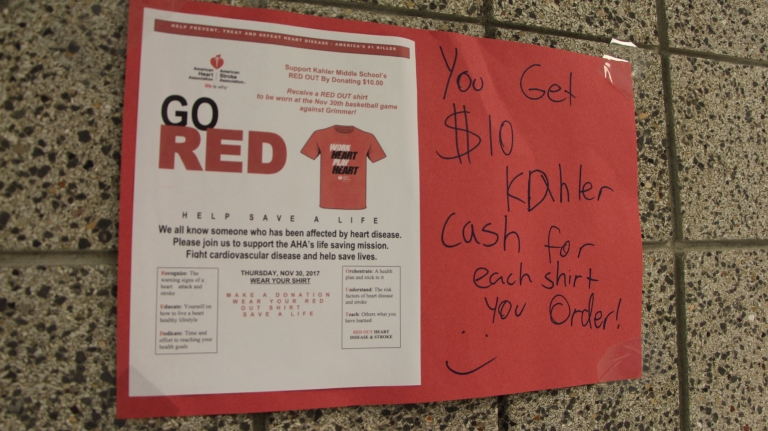 HELP PREVENT, TREAT AND DEFEAT HEART DISEASE - AMERICA'S #1 KILLER
American Heart Association
American Stroke Association
life is why
Support Kahler Middle School's
RED OUT By Donating $10.00
Receive a RED OUT shirt
to be worn at the Nov 30th basketball game
against Grimmer!
GO
RED
WORK
HEART
PLAY
HEART
HELP SAVE A LIFE
We all know someone who has been affected by heart disease.
Please join us to support the AHA's life saving mission.
Fight cardiovascular disease and help save lives.
Recognize: The
warning signs of a
heart attack and
stroke
Educate: Yourself on
how to live a heart
healthy lifestyle
Dedicate: Time and
effort to reaching your
health goals
THURSDAY, NOV 30, 2017
WEAR YOUR SHIRT
MAKE A DONATION
WEAR YOUR RED
OUT SHIRT
SAVE A LIFE
Orchestrate: A health
plan and stick to it
Understand: The risk
factors of heart disease
and stroke
Teach: Others what you
have learned
RED OUT HEART
DISEASE & STROKE
You Get
$10
KAhler
Cash for
each shirt
You Order!